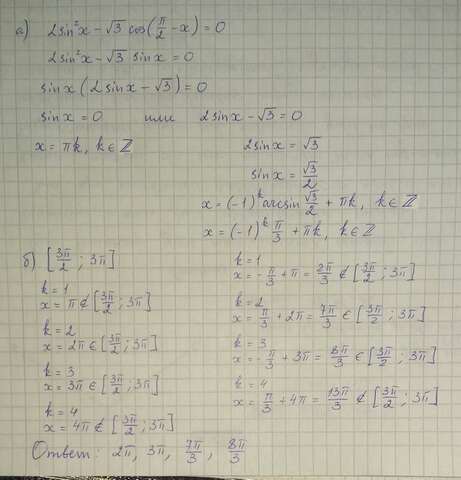 а) 2sin²x − √3 cos(π/2 − x) = 0
2sin²x − √3 sinx = 0
sinx(2sinx − √3) = 0
sinx = 0 или 2sinx − √3 = 0
x = πk, k ∈ ℤ
2sinx = √3
sinx = √3/2
x = (−1)^k arcsin √3/2 + πk, k ∈ ℤ
x = (−1)^k π/3 + πk, k ∈ ℤ
б) [3π/2 ; 3π]
k = 1
x = π ∉ [3π/2 ; 3π]
k = 2
x = 2π ∈ [3π/2 ; 3π]
k = 3
x = 3π ∈ [3π/2 ; 3π]
k = 4
x = 4π ∉ [3π/2 ; 3π]
k = 1
x = −π/3 + π = 2π/3 ∉ [3π/2 ; 3π]
k = 2
x = π/3 + 2π = 7π/3 ∈ [3π/2 ; 3π]
k = 3
x = −π/3 + 3π = 8π/3 ∈ [3π/2 ; 3π]
k = 4
x = π/3 + 4π = 13π/3 ∉ [3π/2 ; 3π]
Ответ: 2π, 3π, 7π/3, 8π/3